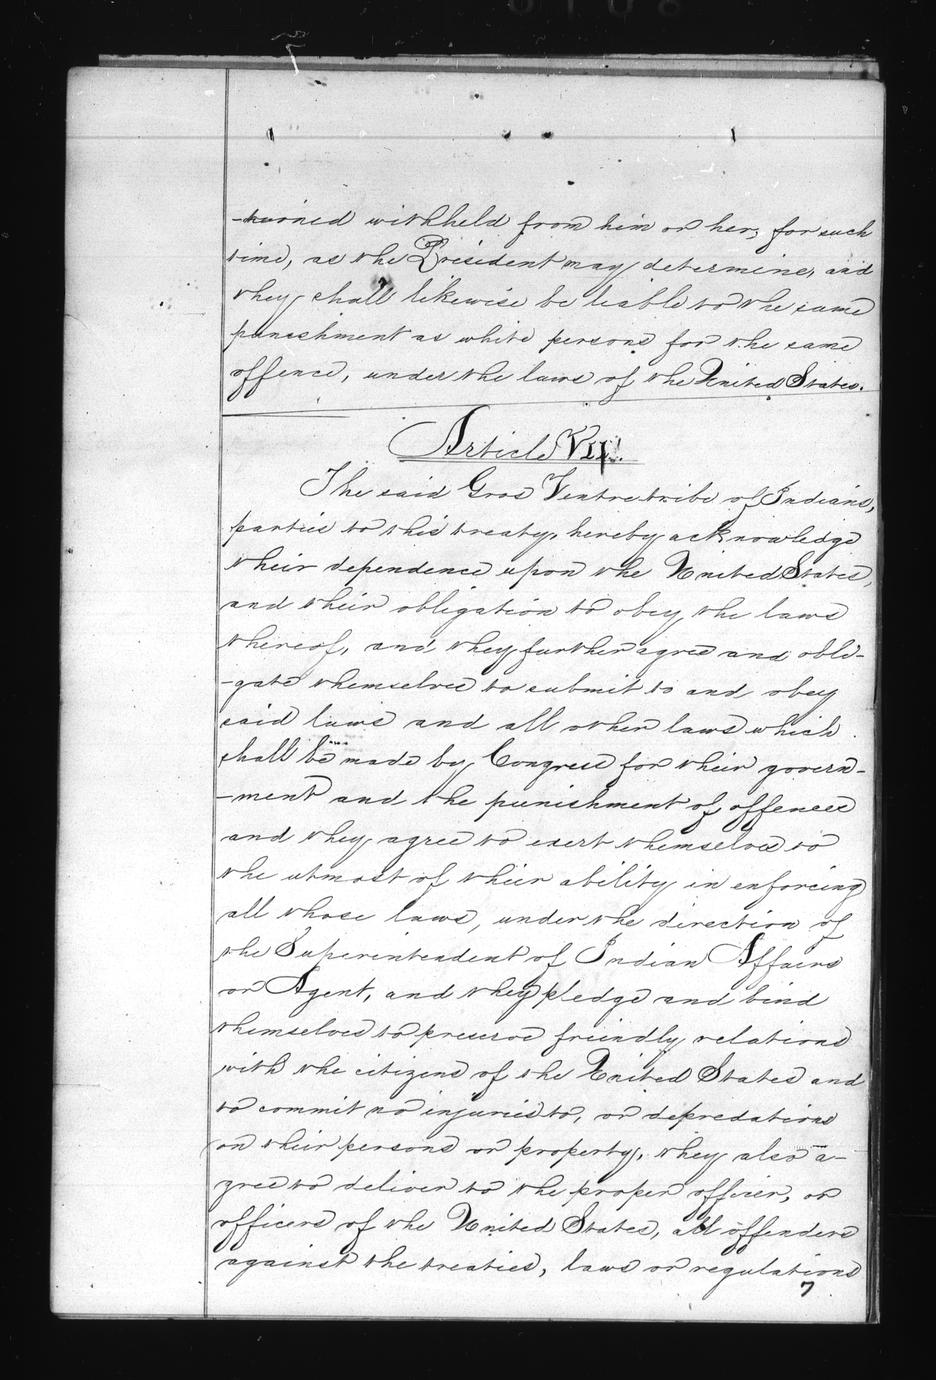 -turned withheld from him or her, for such
time, as the President may determine, and
they shall likewise be liable to the same
punishment as white persons for the same
offence, under the laws of the United States.
Article VII.
The said Gros Ventre tribe of Indians,
parties to this treaty, hereby acknowledge
their dependence upon the United States,
and their obligation to obey the laws
thereof, and they further agree and obli-
-gate themselves to submit to and obey
said laws and all other laws which
shall be made by Congress for their govern-
-ment and the punishment of offences
and they agree to exert themselves to
the utmost of their ability in enforcing
all those laws, under the direction of
the Superintendent of Indian Affairs
or Agent, and they pledge and bind
themselves to preserve friendly relations
with the citizens of the United States and
to commit no injuries to, or depredations
on their persons or property, they also a-
gree to deliver to the proper officer, or
officers of the United States, all offenders
against the treaties, laws or regulations
7